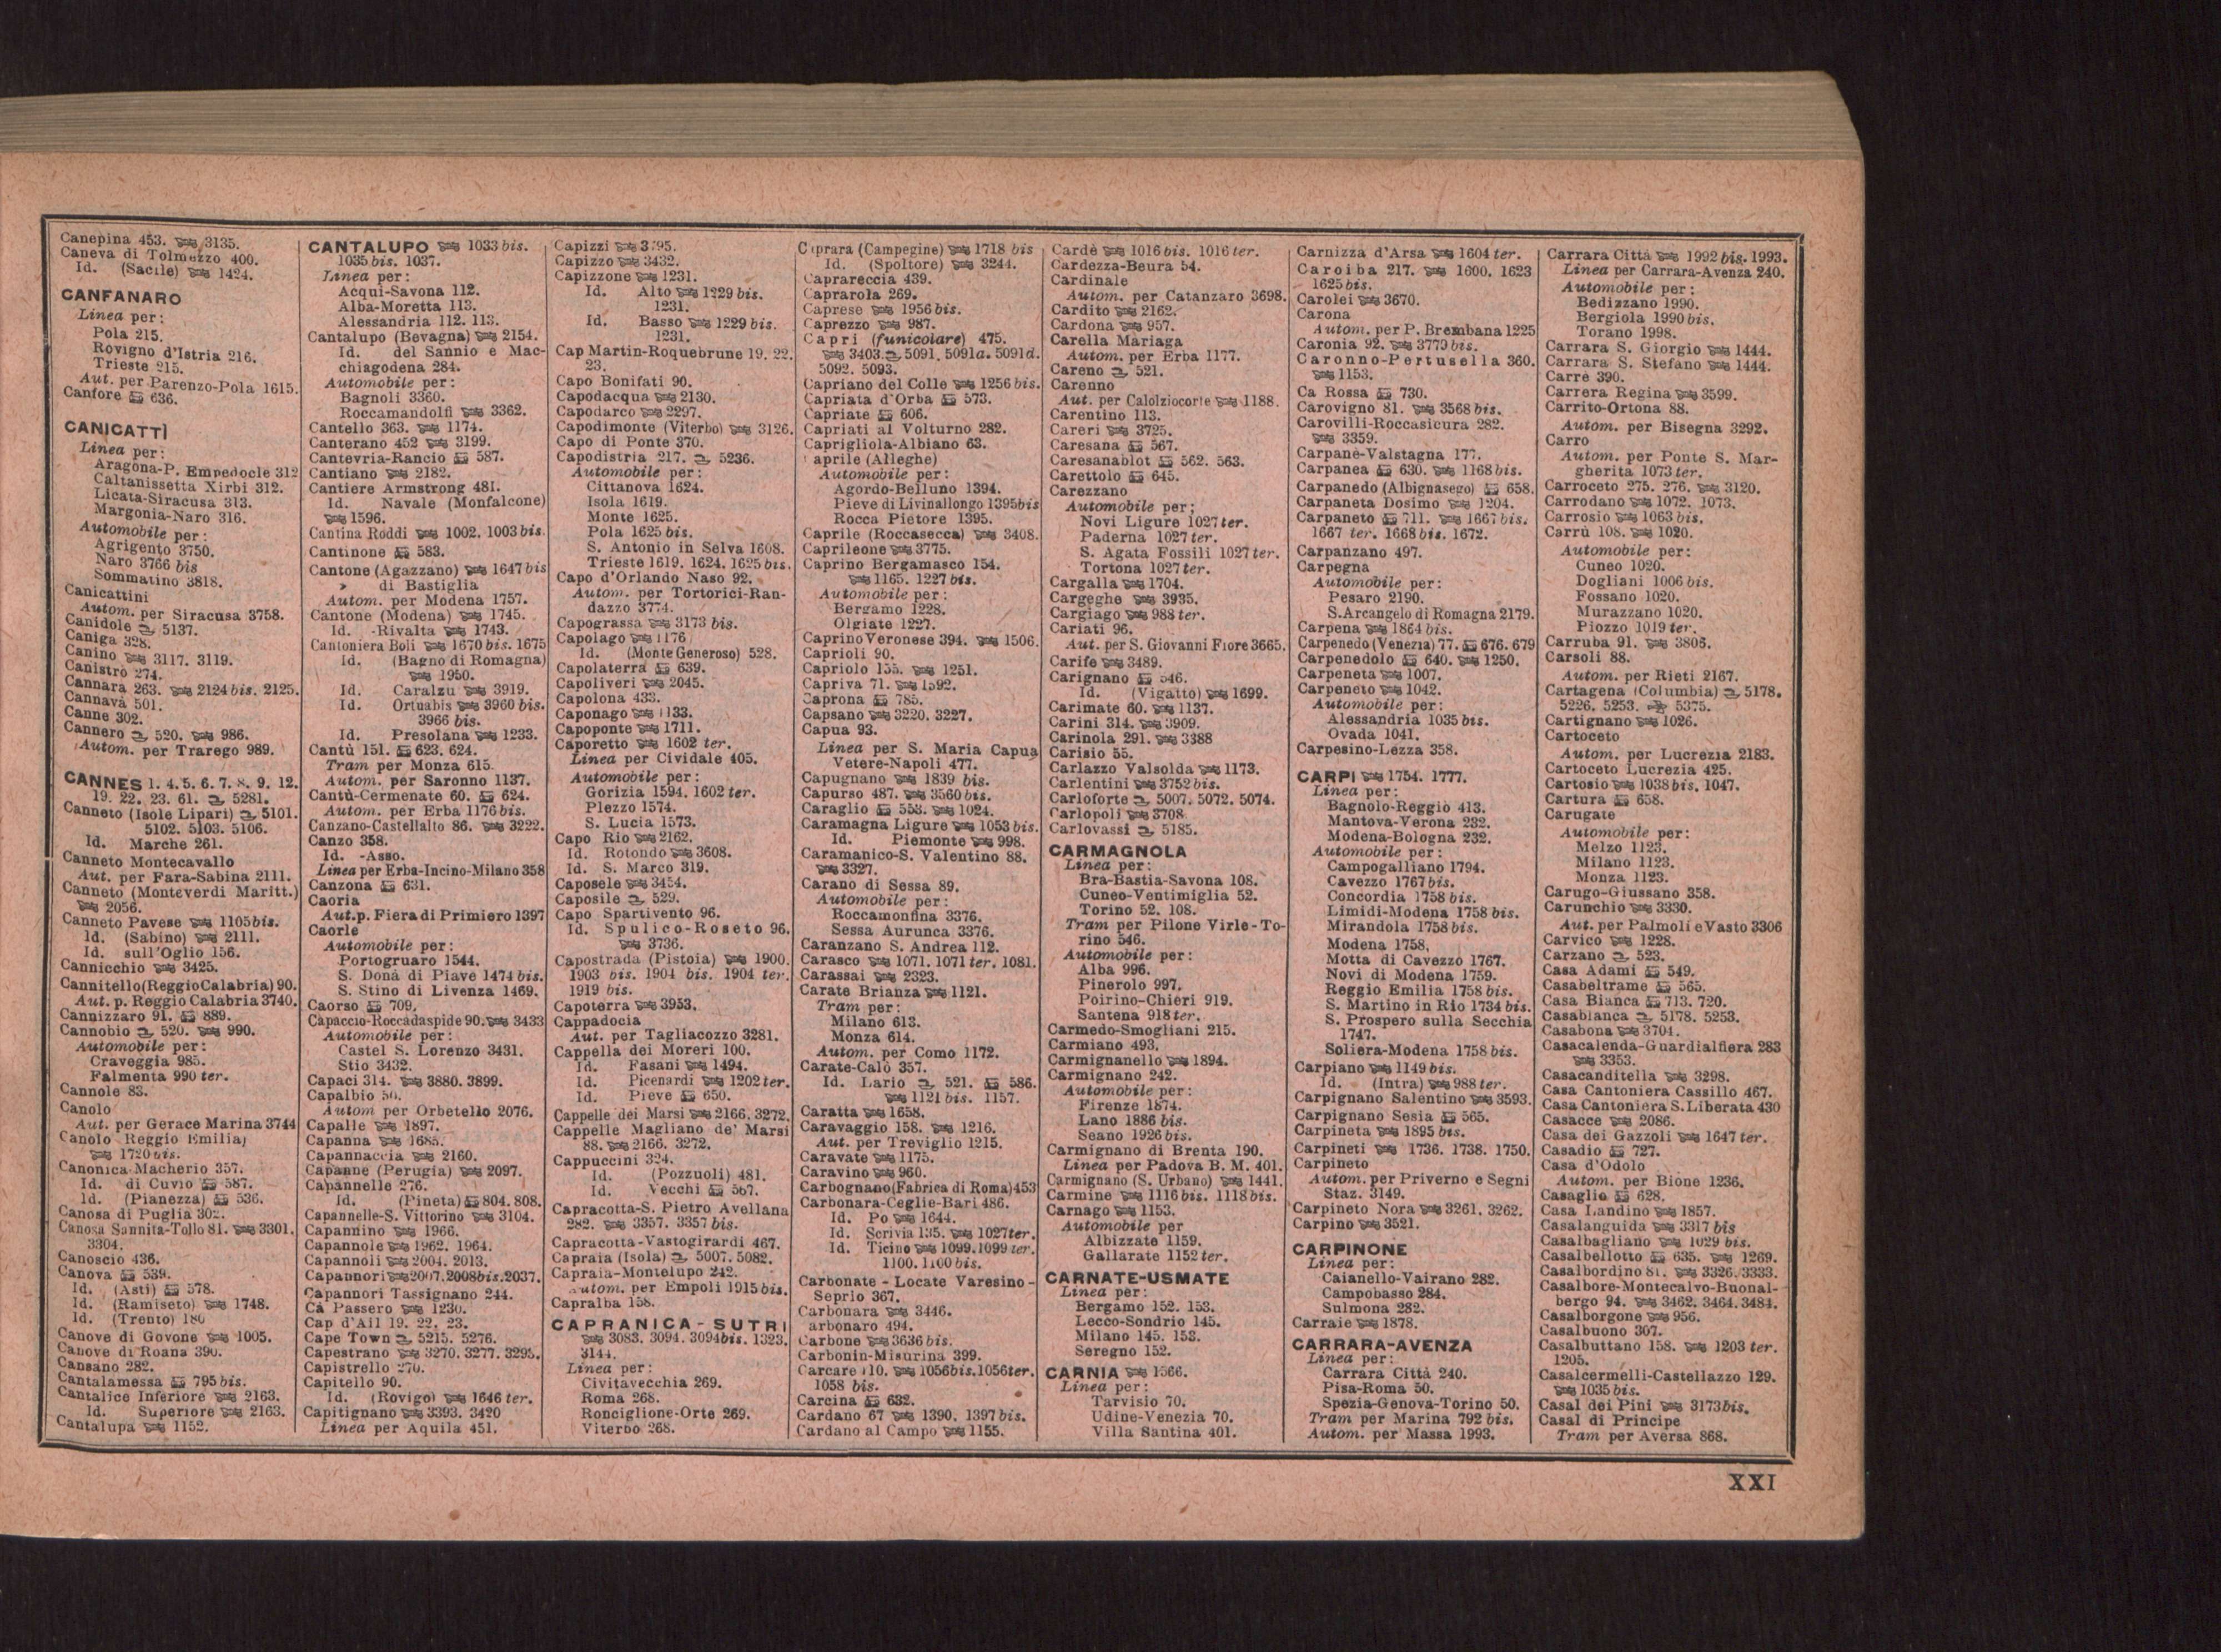 Canepina 453. 3135.
Caneva di Tolmezzo 400.
Id. (Sacile) 1424.
CANFANARO
Linea per:
Pola 215.
Rovigno d'Istria 216.
Trieste 215.
Aut. per Parenzo-Pola 1615.
Canfore 636.
CANICATTÌ
Linea per:
Aragona-P. Empedocle 312
Caltanissetta Xirbi 312.
Licata-Siracusa 313.
Margonia-Naro 316.
Automobile per:
Agrigento 3750.
Naro 3766 bis
Sommatino 3818.
Canicattini
Autom. per Siracusa 3758.
Canidole 5137.
Caniga 328.
Canino 3117. 3119.
Canistro 274.
Cannara 263. 2124 bis. 2125.
Cannavà 501.
Canne 302.
Cannero 520. 986.
Autom. per Trarego 989.
CANNES 1. 4. 5. 6. 7. 8. 9. 12.
19. 22. 23. 61. 5281.
Canneto (Isole Lipari) 5101.
5102. 5103. 5106.
Id. Marche 261.
Canneto Montecavallo
Aut. per Fara-Sabina 2111.
Canneto (Monteverdi Maritt.)
2056.
Canneto Pavese 1105 bis.
Id. (Sabino) 2111.
Id. sull'Oglio 156.
Cannicchio 3425.
Cannitello (Reggio Calabria) 90.
Aut. p. Reggio Calabria 3740.
Cannizzaro 91. 889.
Cannobio 520. 990.
Automobile per:
Craveggia 985.
Falmenta 990 ter.
Cannole 83.
Canolo
Aut. per Gerace Marina 3744
Canolo Reggio Emilia)
1720 bis.
Canonica-Macherio 357.
Id. di Cuvio 587.
Id. (Pianezza) 536.
Canosa di Puglia 302.
Canosa Sannita-Tollo 81. 3301.
3304.
Canoscio 436.
Canova 539.
Id. (Asti) 578.
Id. (Ramiseto) 1748.
Id. (Trento) 180
Canove di Govone 1005.
Canove di Roana 390.
Cansano 282.
Cantalamessa 795 bis.
Cantalice Inferiore 2163.
Id. Superiore 2163.
Cantalupa 1152.
CANTALUPO 1033 bis.
1035 bis. 1037.
Linea per:
Acqui-Savona 112.
Alba-Moretta 113.
Alessandria 112. 113.
Cantalupo (Bevagna) 2154.
Id. del Sannio e Mac-
chiagodena 284.
Automobile per:
Bagnoli 3360.
Roccamandolfi 3362.
Cantello 363. 1174.
Canterano 452 3199.
Cantevria-Rancio 587.
Cantiano 2182.
Cantiere Armstrong 481.
Id. Navale (Monfalcone)
1596.
Cantina Roddi 1002. 1003 bis.
Cantinone 583.
Cantone (Agazzano) 1647 bis
› di Bastiglia
Autom. per Modena 1757.
Cantone (Modena) 1745.
Id. -Rivalta 1743.
Cantoniera Boli 1670 bis. 1675
Id. (Bagno di Romagna)
1950.
Id. Caralzu 3919.
Id. Ortuabis 3960 bis.
3966 bis.
Id. Presolana 1233.
Cantù 151. 623. 624.
Tram per Monza 615.
Autom. per Saronno 1137.
Cantù-Cermenate 60. 624.
Autom. per Erba 1176 bis.
Canzano-Castellalto 86. 3222.
Canzo 358.
Id. -Asso.
Linea per Erba-Incino-Milano 358
Canzona 631.
Caoria
Aut. p. Fiera di Primiero 1397
Caorle
Automobile per:
Portogruaro 1544.
S. Donà di Piave 1474 bis.
S. Stino di Livenza 1469.
Caorso 709.
Capaccio-Roccadaspide 90. 3433
Automobile per:
Castel S. Lorenzo 3431.
Stio 3432.
Capaci 314. 3880. 3899.
Capalbio 50.
Autom per Orbetello 2076.
Capalle 1897.
Capanna 1685.
Capannaccia 2160.
Capanne (Perugia) 2097.
Capannelle 276.
Id. (Pineta) 804. 808.
Capannelle-S. Vittorino 3104.
Capannino 1966.
Capannole 1962. 1964.
Capannoli 2004. 2013.
Capannori 2007. 2008 bis. 2037.
Capannori Tassignano 244.
Cà Passero 1230.
Cap d'Ail 19. 22. 23.
Cape Town 5215. 5276.
Capestrano 3270. 3277. 3295.
Capistrello 270.
Capitello 90.
Id. (Rovigo) 1646 ter.
Capitignano 3393. 3420
Linea per Aquila 451.
Capizzi 3795.
Capizzo 3432.
Capizzone 1231.
Id. Alto 1229 bis.
1231.
Id. Basso 1229 bis.
1231.
Cap Martin-Roquebrune 19. 22.
23.
Capo Bonifati 90.
Capodacqua 2130.
Capodarco 2297.
Capodimonte (Viterbo) 3126.
Capo di Ponte 370.
Capodistria 217. 5236.
Automobile per:
Cittanova 1624.
Isola 1619.
Monte 1625.
Pola 1625 bis.
S. Antonio in Selva 1608.
Trieste 1619. 1624. 1625 bis.
Capo d'Orlando Naso 92.
Autom. per Tortorici-Ran-
dazzo 3774.
Capograssa 3173 bis.
Capolago 1176
Id. (Monte Generoso) 528.
Capolaterra 639.
Capoliveri 2045.
Capolona 433.
Caponago 1133.
Capoponte 1711.
Caporetto 1602 ter.
Linea per Cividale 405.
Automobile per:
Gorizia 1594. 1602 ter.
Plezzo 1574.
S. Lucia 1573.
Capo Rio 2162.
Id. Rotondo 3608.
Id. S. Marco 319.
Caposele 3454.
Caposile 529.
Capo Spartivento 96.
Id. Spulico-Roseto 96.
3736.
Capostrada (Pistoia) 1900.
1903 bis. 1904 bis. 1904 ter.
1919 bis.
Capoterra 3953.
Cappadocia
Aut. per Tagliacozzo 3281.
Cappella dei Moreri 100.
Id. Fasani 1494.
Id. Picenardi 1202 ter.
Id. Pieve 650.
Cappelle dei Marsi 2166. 3272.
Cappelle Magliano de' Marsi
88. 2166. 3272.
Cappuccini 324.
Id. (Pozzuoli) 481.
Id. Vecchi 567.
Capracotta-S. Pietro Avellana
282. 3357. 3357 bis.
Capracotta-Vastogirardi 467.
Capraia (Isola) 5007. 5082.
Capraia-Montelupo 242.
Autom. per Empoli 1915 bis.
Capralba 158.
CAPRANICA-SUTRI
3083. 3094. 3094 bis. 1323.
3144.
Linea per:
Civitavecchia 269.
Roma 268.
Ronciglione-Orte 269.
Viterbo 268.
Caprara (Campegine) 1718 bis
Id. (Spoltore) 3244.
Caprareccia 439.
Caprarola 269.
Caprese 1956 bis.
Caprezzo 987.
Capri (funicolare) 475.
3403. 5091. 5091a. 5091d.
5092. 5093.
Capriano del Colle 1256 bis.
Capriata d'Orba 573.
Capriate 606.
Capriati al Volturno 282.
Caprigliola-Albiano 63.
aprile (Alleghe)
Automobile per:
Agordo-Belluno 1394.
Pieve di Livinallongo 1395 bis
Rocca Pietore 1395.
Caprile (Roccasecca) 3408.
Caprileone 3775.
Caprino Bergamasco 154.
1165. 1227 bis.
Automobile per:
Bergamo 1228.
Olgiate 1227.
Caprino Veronese 394. 1506.
Caprioli 90.
Capriolo 155. 1251.
Capriva 71. 1592.
Caprona 785.
Capsano 3220. 3227.
Capua 93.
Linea per S. Maria Capua
Vetere-Napoli 477.
Capugnano 1839 bis.
Capurso 487. 3560 bis.
Caraglio 558. 1024.
Caramagna Ligure 1053 bis.
Id. Piemonte 998.
Caramanico-S. Valentino 88.
3327.
Carano di Sessa 89.
Automobile per:
Roccamonfina 3376.
Sessa Aurunca 3376.
Caranzano S. Andrea 112.
Carasco 1071. 1071 ter. 1081.
Carassai 2323.
Carate Brianza 1121.
Tram per:
Milano 613.
Monza 614.
Autom. per Como 1172.
Carate-Calò 357.
Id. Lario 521. 586.
1121 bis. 1157.
Caratta 1658.
Caravaggio 158. 1216.
Aut. per Treviglio 1215.
Caravate 1175.
Caravino 960.
Carbognano (Fabrica di Roma) 453
Carbonara-Ceglie-Bari 486.
Id. Po 1644.
Id. Scrivia 135. 1027 ter.
Id. Ticino 1099. 1099 ter.
1100. 1100 bis.
Carbonate - Locate Varesino -
Seprio 367.
Carbonara 3446.
arbonaro 494.
Carbone 3636 bis.
Carbonin-Misurina 399.
Carcare 110. 1056 bis. 1056 ter.
1058 bis.
Carcina 632.
Cardano 67 1390. 1397 bis.
Cardano al Campo 1155.
Cardè 1016 bis. 1016 ter.
Cardezza-Beura 54.
Cardinale
Autom. per Catanzaro 3698.
Cardito 2162.
Cardona 957.
Carella Mariaga
Autom. per Erba 1177.
Careno 521.
Carenno
Aut. per Calolziocorte 1188.
Carentino 113.
Careri 3725.
Caresana 567.
Caresanablot 562. 563.
Carettolo 645.
Carezzano
Automobile per;
Novi Ligure 1027 ter.
Paderna 1027 ter.
S. Agata Fossili 1027 ter.
Tortona 1027 ter.
Cargalla 1704.
Cargeghe 3935.
Cargiago 988 ter.
Cariati 96.
Aut. per S. Giovanni Fiore 3665.
Carife 3489.
Carignano 546.
Id. (Vigatto) 1699.
Carimate 60. 1137.
Carini 314. 3909.
Carinola 291. 3388
Carisio 55.
Carlazzo Valsolda 1173.
Carlentini 3752 bis.
Carloforte 5007. 5072. 5074.
Carlopoli 3708
Carlovassi 5185.
CARMAGNOLA
Linea per:
Bra-Bastia-Savona 108.
Cuneo-Ventimiglia 52.
Torino 52. 108.
Tram per Pilone Virle-To-
rino 546.
Automobile per:
Alba 996.
Pinerolo 997.
Poirino-Chieri 919.
Santena 918 ter.
Carmedo-Smogliani 215.
Carmiano 493.
Carmignanello 1894.
Carmignano 242.
Automobile per:
Firenze 1874.
Lano 1886 bis.
Seano 1926 bis.
Carmignano di Brenta 190.
Linea per Padova B. M. 401.
Carmignano (S. Urbano) 1441.
Carmine 1116 bis. 1118 bis.
Carnago 1153.
Automobile per
Albizzate 1159.
Gallarate 1152 ter.
CARNATE-USMATE
Linea per:
Bergamo 152. 153.
Lecco-Sondrio 145.
Milano 145. 153.
Seregno 152.
CARNIA 1566.
Linea per:
Tarvisio 70.
Udine-Venezia 70.
Villa Santina 401.
Carnizza d'Arsa 1604 ter.
Caroiba 217. 1600. 1623
1625 bis.
Carolei 3670.
Carona
Autom. per P. Brembana 1225
Caronia 92. 3779 bis.
Caronno-Pertusella 360.
1153.
Ca Rossa 730.
Carovigno 81. 3568 bis.
Carovilli-Roccasicura 282.
3359.
Carpanè-Valstagna 177.
Carpanea 630. 1168 bis.
Carpanedo (Albignasego) 658.
Carpaneta Dosimo 1204.
Carpaneto 711. 1667 bis.
1667 ter. 1668 bis. 1672.
Carpanzano 497.
Carpegna
Automobile per:
Pesaro 2190.
S. Arcangelo di Romagna 2179.
Carpena 1864 bis.
Carpenedo (Venezia) 77. 676. 679
Carpenedolo 640. 1250.
Carpeneta 1007.
Carpeneto 1042.
Automobile per:
Alessandria 1035 bis.
Ovada 1041.
Carpesino-Lezza 358.
CARPI 1754. 1777.
Linea per:
Bagnolo-Reggio 413.
Mantova-Verona 232.
Modena-Bologna 232.
Automobile per:
Campogalliano 1794.
Cavezzo 1767 bis.
Concordia 1758 bis.
Limidi-Modena 1758 bis.
Mirandola 1758 bis.
Modena 1758.
Motta di Cavezzo 1767.
Novi di Modena 1759.
Reggio Emilia 1758 bis.
S. Martino in Rio 1734 bis.
S. Prospero sulla Secchia
1747.
Soliera-Modena 1758 bis.
Carpiano 1149 bis.
Id. (Intra) 988 ter.
Carpignano Salentino 3593.
Carpignano Sesia 565.
Carpineta 1895 bis.
Carpineti 1736. 1738. 1750.
Carpineto
Autom. per Priverno e Segni
Staz. 3149.
Carpineto Nora 3261. 3262.
Carpino 3521.
CARPINONE
Linea per:
Caianello-Vairano 282.
Campobasso 284.
Sulmona 282.
Carraie 1878.
CARRARA-AVENZA
Linea per:
Carrara Città 240.
Pisa-Roma 50.
Spezia-Genova-Torino 50.
Tram per Marina 792 bis.
Autom. per Massa 1993.
Carrara Città 1992 bis. 1993.
Linea per Carrara-Avenza 240.
Automobile per:
Bedizzano 1990.
Bergiola 1990 bis.
Torano 1998.
Carrara S. Giorgio 1444.
Carrara S. Stefano 1444.
Carrè 390.
Carrera Regina 3599.
Carrito-Ortona 88.
Autom. per Bisegna 3292.
Carro
Autom. per Ponte S. Mar-
gherita 1073 ter.
Carroceto 275. 276. 3120.
Carrodano 1072. 1073.
Carrosio 1063 bis.
Carrù 108. 1020.
Automobile per:
Cuneo 1020.
Dogliani 1006 bis.
Fossano 1020.
Murazzano 1020.
Piozzo 1019 ter.
Carruba 91. 3805.
Carsoli 88.
Autom. per Rieti 2167.
Cartagena (Columbia) 5178.
5226. 5253. 5375.
Cartignano 1026.
Cartoceto
Autom. per Lucrezia 2183.
Cartoceto Lucrezia 425.
Cartosio 1038 bis. 1047.
Cartura 658.
Carugate
Automobile per:
Melzo 1123.
Milano 1123.
Monza 1123.
Carugo-Giussano 358.
Carunchio 3330.
Aut. per Palmoli e Vasto 3306
Carvico 1228.
Carzano 523.
Casa Adami 549.
Casabeltrame 565.
Casa Bianca 713. 720.
Casablanca 5178. 5253.
Casabona 3704.
Casacalenda-Guardialfiera 283
3353.
Casacanditella 3298.
Casa Cantoniera Cassillo 467.
Casa Cantoniera S. Liberata 430
Casacce 2086.
Casa dei Gazzoli 1647 ter.
Casadio 727.
Casa d'Odolo
Autom. per Bione 1236.
Casaglio 628.
Casa Landino 1857.
Casalanguida 3317 bis
Casalbagliano 1029 bis.
Casalbellotto 635. 1269.
Casalbordino 81. 3326. 3333.
Casalbore-Montecalvo-Buonal-
bergo 94. 3462. 3464. 3484.
Casalborgone 956.
Casalbuono 307.
Casalbuttano 158. 1203 ter.
1205.
Casalcermelli-Castellazzo 129.
1035 bis.
Casal dei Pini 3173 bis.
Casal di Principe
Tram per Aversa 868.
XXI